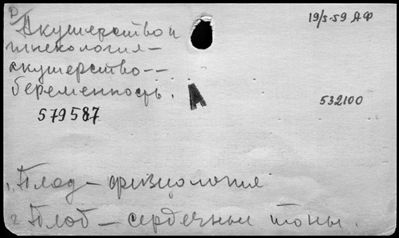 Р
Акушерство и
гинекология —
акушерство --
беременность.
579587
19/5-59 АФ
А
532100
1. Плод — физиология
2. Плод — сердечные тоны.